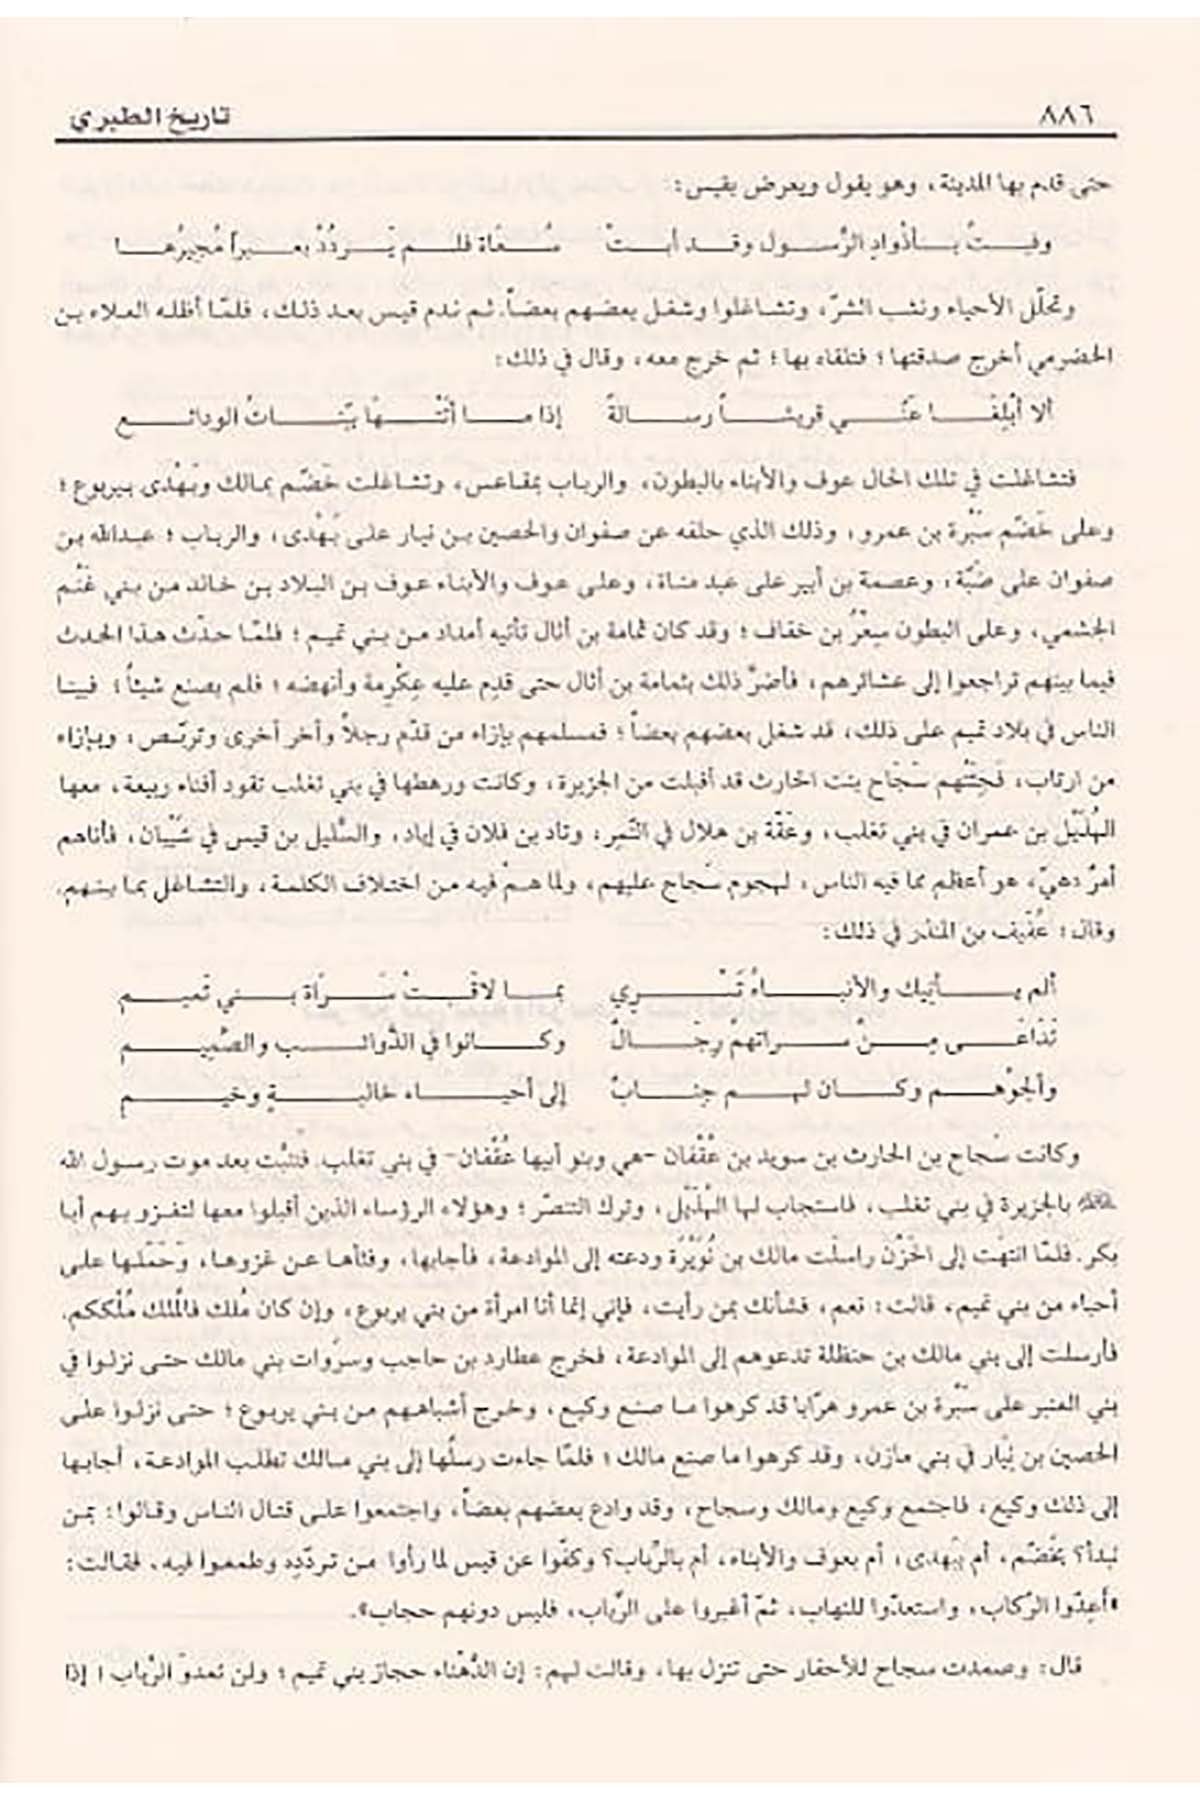 ٨٨٦ تاريخ الطبري
حتى قدم بها المدينة، وهو يقول ويعرض بقيس:
وفيتُ بأذواد الرَّسول وقد أبتْ سُعاة فلم يَردُدْ بعيراً مُجيرُها
وتحلّل الأحياء ونشب الشرّ، وتشاغلوا وشغل بعضهم بعضاً. ثم ندم قيس بعد ذلك، فلمّا أظله العلاء بن
الحضرمي أخرج صدقتها؛ فتلقاه بها؛ ثم خرج معه، وقال في ذلك:
ألا أبْلِغَا عَنِّي قريشاً رسالةً إذا ما أتَتْها بيّناتُ الودائع
فتشاغلت في تلك الحال عوف والأبناء بالبطون، والرباب بمقاعس، وتشاغلت خَضّم بمالك وبَهْدَى بيربوع؛
وعلى خَضّم سَبْرة بن عمرو، وذلك الذي حلفه عن صفوان والحصين بن نيار على بَهْدى، والرباب؛ عبدالله بن
صفوان على ضَبّة، وعصمة بن أبير على عبد مناة، وعلى عوف والأبناء عوف بن البلاد بن خالد من بني غَنْم
الجشمي، وعلى البطون سِعْرُ بن خفاف؛ وقد كان ثمامة بن أثال تأتيه أمداد من بني تميم؛ فلمّا حدّث هذا الحدث
فيما بينهم تراجعوا إلى عشائرهم، فأضرَّ ذلك بثمامة بن أثال حتى قدم عليه عِكْرِمة وأنهضه؛ فلم يصنع شيئاً؛ فبينا
الناس في بلاد تميم على ذلك، قد شغل بعضهم بعضاً؛ فمسلمهم بإزاء من قدّم رجلاً وأخر أخرى وتربّص، وبإزاء
من ارتاب، فَجِئَتْهم سَجَاح بنت الحارث قد أقبلت من الجزيرة، وكانت ورهطها في بني تغلب تقود أفناء ربيعة، معها
الهُذَيْل بن عمران في بني تغلب، وعَقّة بن هلال في النَّمِر، وتاد بن فلان في إياد، والسَّليل بن قيس في شَيْبان، فأتاهم
أمرٌ دهيّ، هو أعظم مما فيه الناس، لهجوم سَجاح عليهم، ولما همْ فيه من اختلاف الكلمة، والتشاغل بما بينهم.
وقال؛ عُفَيف بن المنذر في ذلك:
ألم يأتيك والأنباءُ تَسْرِي بما لاقَتْ سَرَاة بني تَميم
تَدَاعَى مِنْ سَراتهمْ رِجَالٌ وكانوا في الذَّوائب والصَّميم
وألجوْهم وكان لهم جنابٌ إلى أحياء خاليةٍ وخيم
وكانت سَجاح بن الحارث بن سويد بن عُقْفان -هي وبنو أبيها عُقْفان- في بني تغلب. فتنبَّت بعد موت رسول الله
ﷺ بالجزيرة في بني تغلب، فاستجاب لها الهُذَيْل، وترك التنصّر؛ وهؤلاء الرؤساء الذين أقبلوا معها لتغزو بهم أبا
بكر. فلمّا انتهت إلى الحَزْن راسلت مالك بن نُوَيْرَة ودعته إلى الموادعة، فأجابها، وفثأها عن غزوها، وحَمَّلها على
أحياء من بني تميم، قالت: نعم، فشأنك بمن رأيت، فإني إنما أنا امرأة من بني يربوع، وإن كان مُلك فالمُلك مُلْككم.
فأرسلت إلى بني مالك بن حنظلة تدعوهم إلى الموادعة، فخرج عطارد بن حاجب وسرَوات بني مالك حتى نزلوا في
بني العنبر على سَبْرة بن عمرو هرّابا قد كرهوا ما صنع وكيع، وخرج أشباههم من بني يربوع؛ حتى نزلوا على
الحصين بن نِيار في بني مازن، وقد كرهوا ما صنع مالك؛ فلمّا جاءت رسلُها إلى بني مالك تطلب الموادعة، أجابها
إلى ذلك وكيع، فاجتمع وكيع ومالك وسجاح، وقد وادع بعضهم بعضاً، واجتمعوا على قتال الناس وقالوا: بمن
نبدأ؟ بخَضّم، أم ببَهدى، أم بعوف والأبناء، أم بالرِّباب؟ وكفّوا عن قيس لما رأوا من تردّدِه وطمعوا فيه، فقالت:
«أعِدّوا الرّكاب، واستعدّوا للنهاب، ثمّ أغيروا على الرَّباب، فليس دونهم حجاب».
قال: وصمدت سجاح للأحفار حتى تنزل بها، وقالت لهم: إن الدَّهْناء حجاز بني تميم؛ ولن تعدوَ الرِّباب؛ إذا